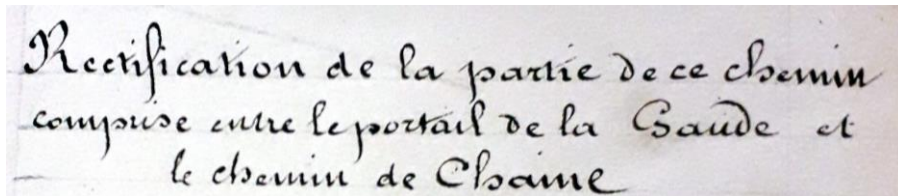 Rectification de la partie de ce chemin
comprise entre le portail de la Gaude et
le chemin de Chaine